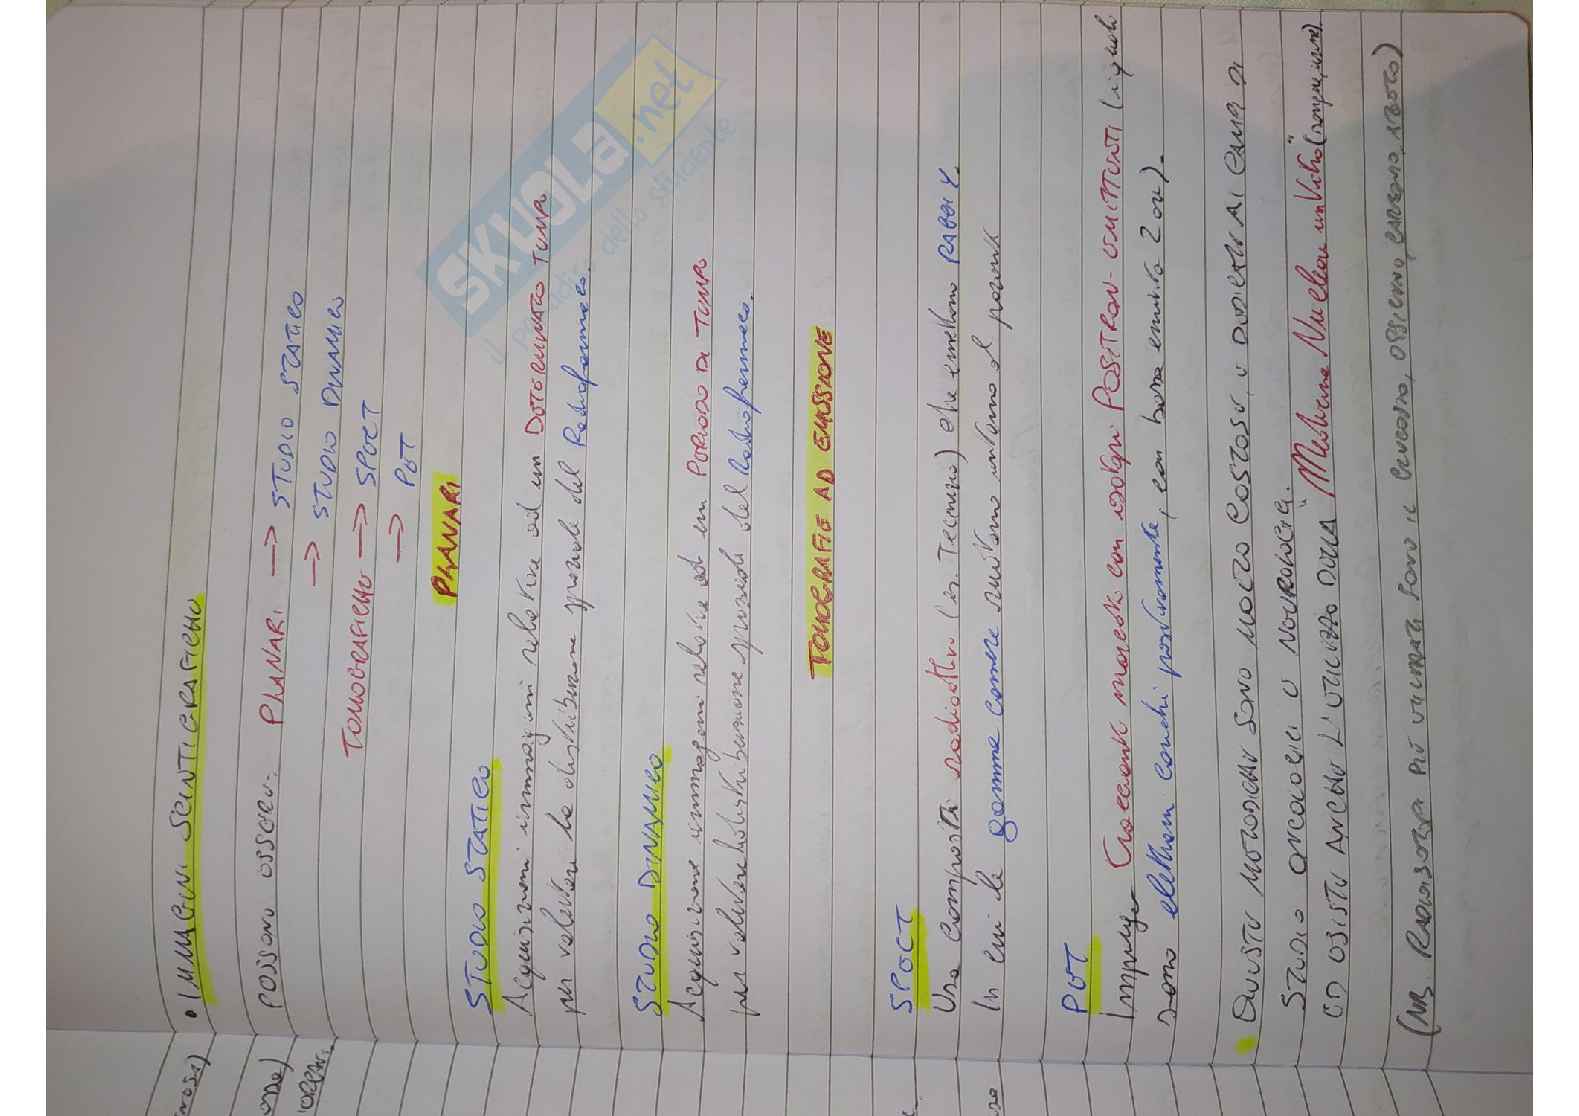 • IMMAGINI SCINTIGRAFICHE
POSSONO ESSERE: PLANARI → STUDIO STATICO
→ STUDIO DINAMICO
TOMOGRAFICHE → SPECT
→ PET
PLANARI
STUDIO STATICO
Acquisizioni immagini relative ad un DETERMINATO TEMPO
per valutare la distribuzione spaziale del Radiofarmaco.
STUDIO DINAMICO
Acquisizione immagini relative ad un PERIODO DI TEMPO
per valutare la distribuzione spaziale del Radiofarmaco.
TOMOGRAFIE AD EMISSIONE
SPECT
Usa composti radioattivi (es. Tecnezio) che emettono RAGGI γ.
In cui le gamma camere ruotano intorno al paziente
PET
Impiega traccianti marcati con isotopi POSITRON-EMITTENTI (i quali
sono elettroni carichi positivamente, con bassa emivita 2 ore).
• QUESTE METODICHE SONO MOLTO COSTOSE, E DEDICATE AI CAMPI DI
STUDIO ONCOLOGICI E NEUROLOGICI.
ED ESISTE ANCHE L'UTILIZZO DELLA "Medicina Nucleare
(NB. RADIOISOTOPI PIÙ UTILIZZATI SONO IL FLUORO, OSSIGENO, CARBONIO, AZOTO)
nosi)
one)
SKUOLA.net
il paradiso dello studente